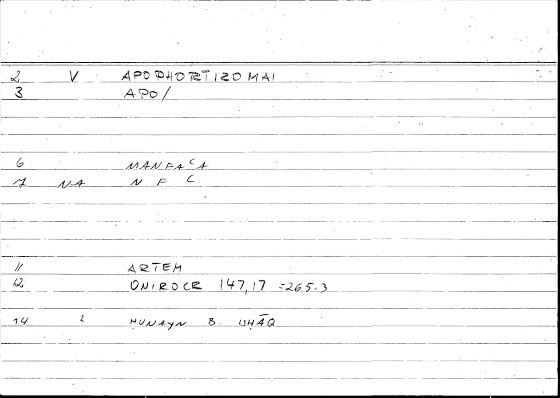 2 V APOPHORTIZOMAI
3 APO/
6 MANFACA
7 NA N F C
11 ARTEM
12 ONIROCR 147,17 =265.3
14 2 HUNAYN B. ISHĀQ